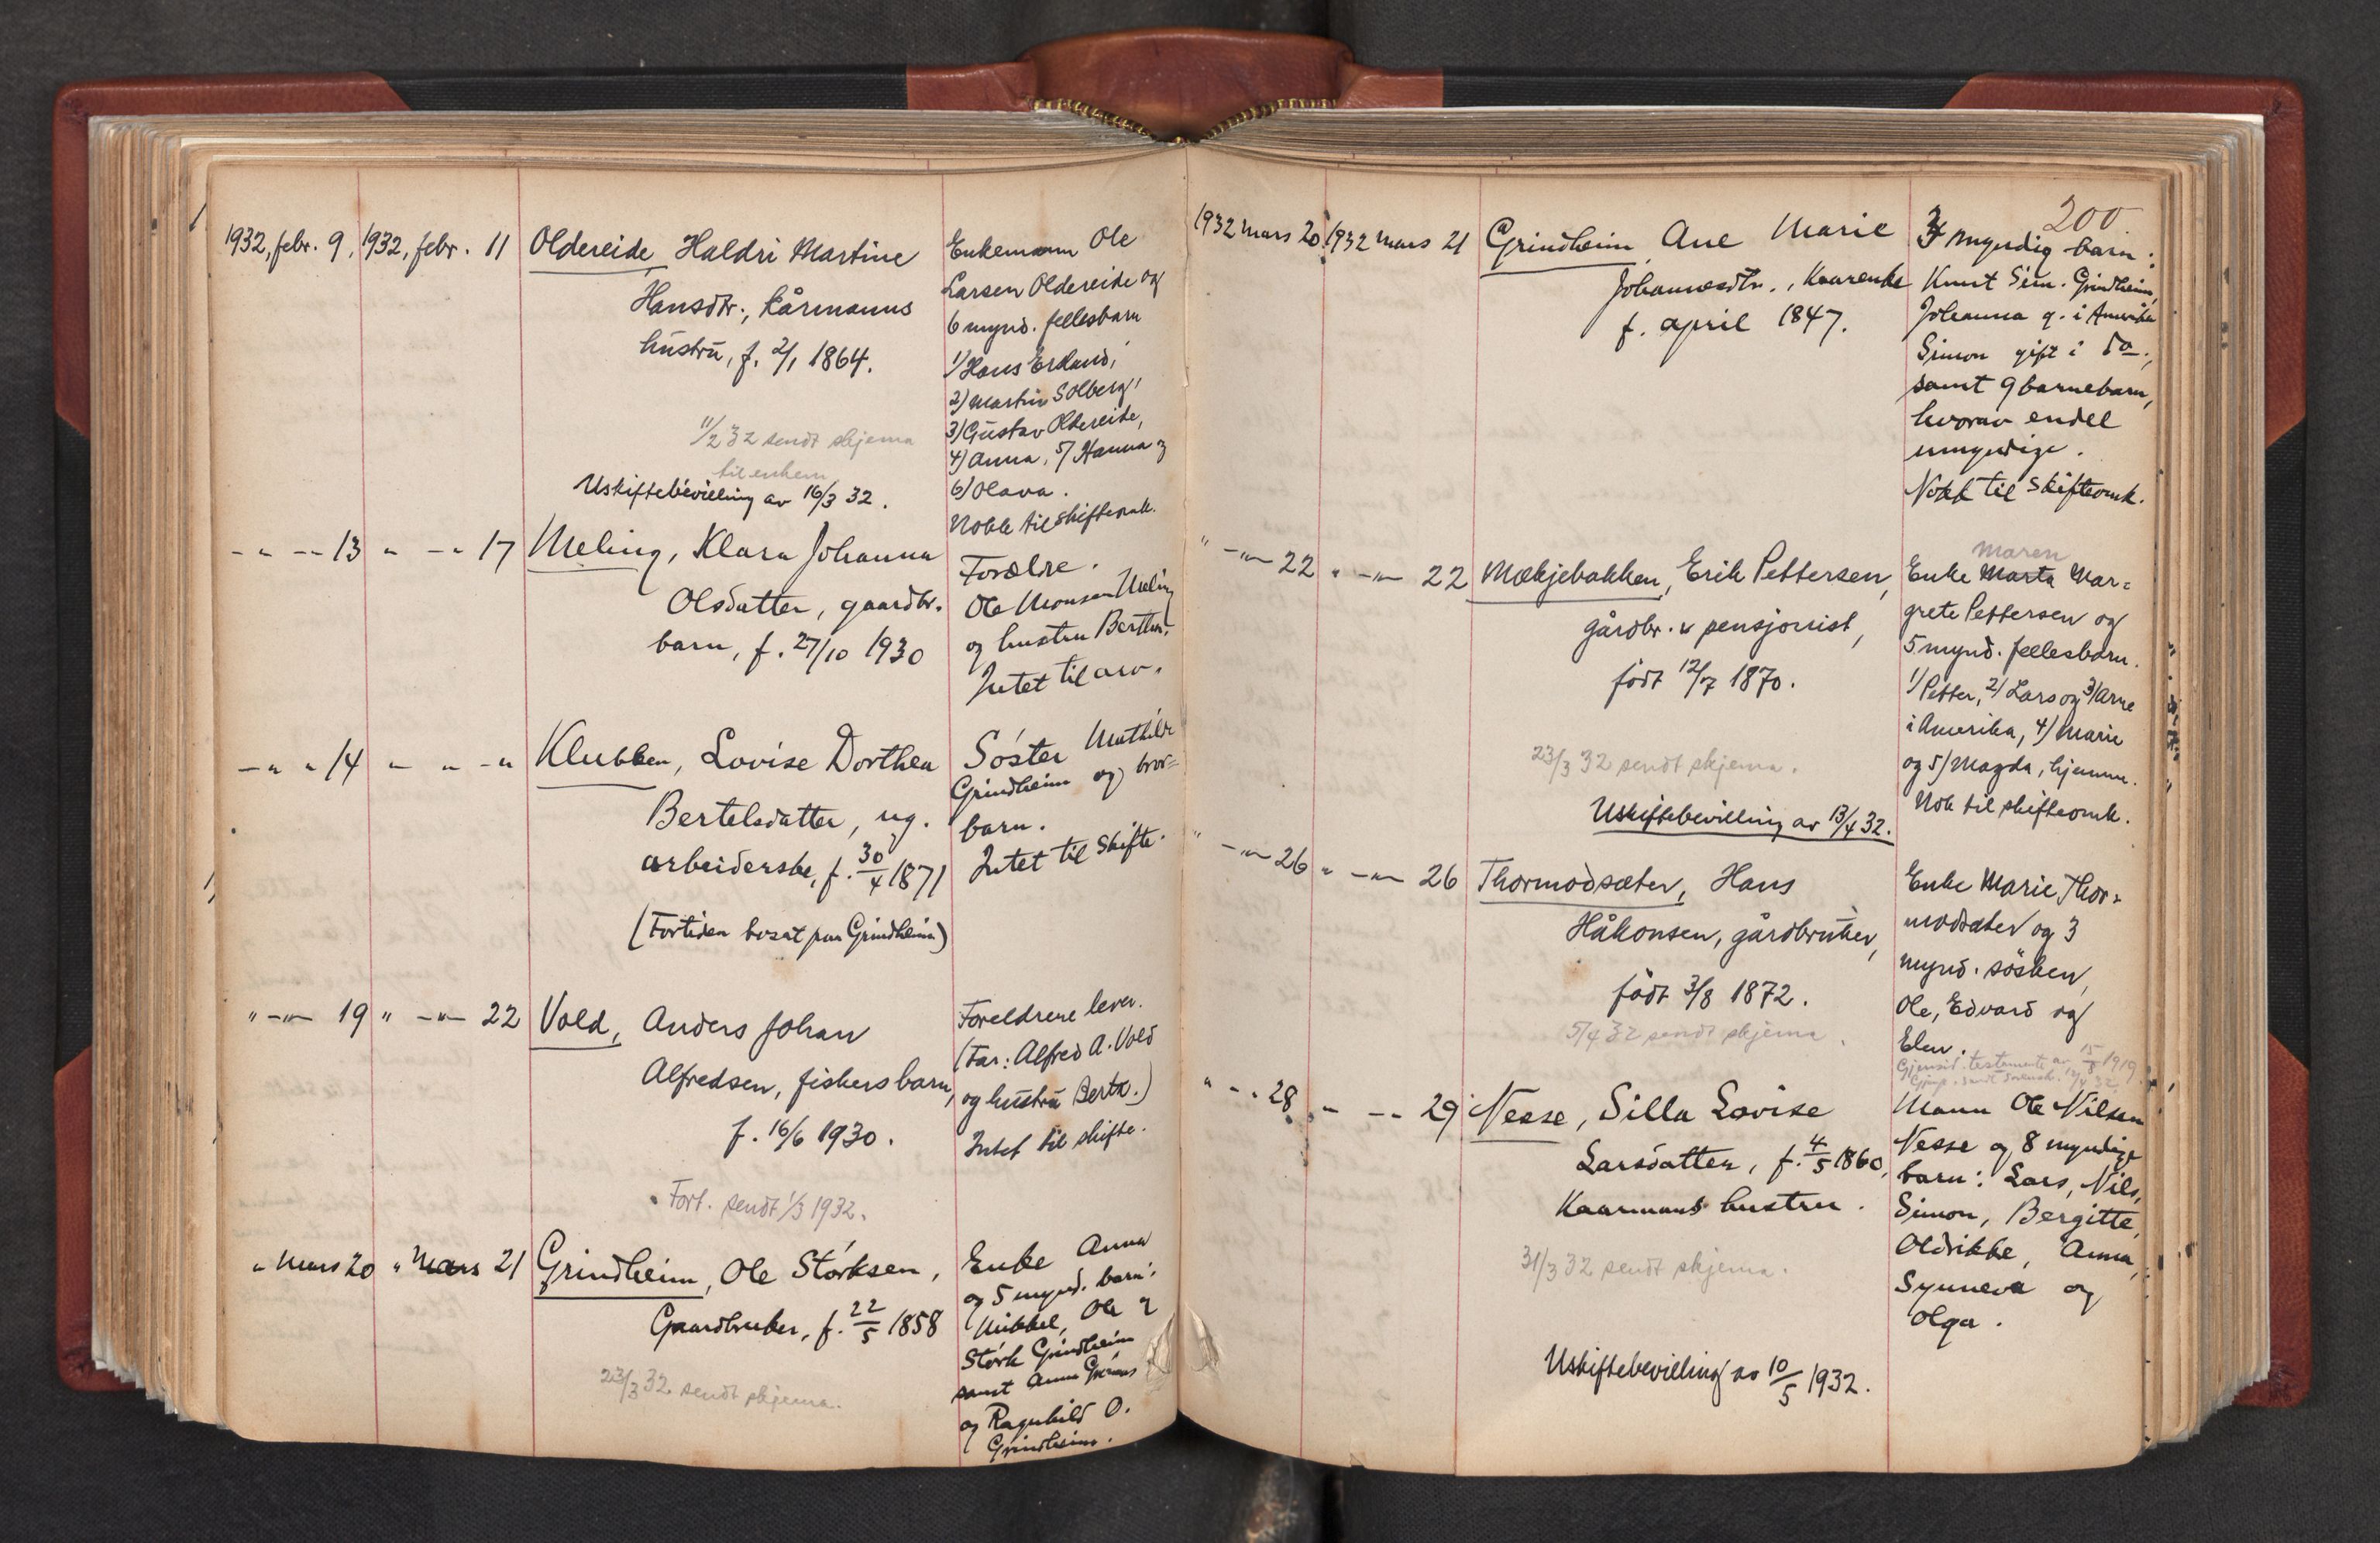 1932, febr. 9. 1932, febr. 11 Oldereide, Haldri Martine
Hansdtr., kårmanns
hustru, f. 2/1 1864.
11/2 32 sendt skjema
til enkem
Uskiftebevilling av 16/3 32.
Enkemann Ole
Larsen Oldereide og
6 mynd. fellesbarn
1/ Hans Erland,
2) Martin Solberg,
3) Gustav Oldereide,
4) Anna, 5/ Hanna og
6) Olava.
Nokk til skifteomk.
- " -- 13 " -- 17 Meling, Klara Johanna
Olsdatter, gaardbr.
barn, f. 27/10 1930
Forældre.
Ole Monsen Meling
og hustru Bertha.
Intet til arv.
- " - 14 " - " - " Klubben, Lovise Dorthea
Bertelsdatter, ug.
arbeiderske, f. 30/4 1871
(Fortiden bosat paa Grindheim)
Søster Mathilde
Grindheim og bror=
barn.
Intet til skifte.
" -"- 19 " -"- 22 Vold, Anders Johan
Alfredsen, fiskers barn,
f. 16/6 1930.
Fort. sendt 1/3 1932.
Foreldrene lever.
(Far: Alfred A. Vold
og hustru Berta.)
Intet til skifte.
" Mars 20 " Mars 21 Grindheim, Ole Størksen,
Gaardbruker, f. 22/5 1858
23/3 32 sendt skjema.
Enke Anna
og 5 mynd. barn:
Mikkel, Ole og
Størk Grindheim
samt Anna
og Ragnhild O.
Grindheim.
200
1932 mars 20 1932 mars 21 Grindheim, Ane Marie
Johannesdtr., Kaarenke
f. april 1847.
3 myndig barn:
Knut Sim. Grindheim,
Johanna g. i Amerika
Simon gift i do.,
samt 9 barnebarn,
hvorav endel
umyndige.
Nokk til skifteomk.
" -"- 22 " -"- 22 Mækjebakken, Erik Pettersen,
gårdbr. & pensjonist,
født 12/7 1870.
23/3 32 sendt skjema.
Uskiftebevilling av 13/4 32.
Maren
Enke Marta Mar=
grete Pettersen og
5 mynd. fellesbarn.
1/ Petter, 2/ Lars og 3/ Arne
i Amerika, 4/ Marie
og 5/ Magda, hjemme.
Nok til skifteomk.
" -"- 26 " -"- 26 Thormodsæter, Hans
Håkonsen, gårdbruker,
født 3/8 1872.
5/4 32 sendt skjema.
Enke Marie Thor=
modsæter og 3
mynd. søsken,
Ole, Edvard og
Elen.
Gjensid. testamente av 15/8 1919.
" - - 28 " -- 29 Nesse, Silla Lovise
Larsdatter, f. 4/5 1860,
Kaarmans hustru.
31/3 32 sendt skjema.
Uskiftebevilling av 10/5 1932.
Mann Ole Nilsen
Nesse og 8 myndige
barn: Lars, Nils,
Simon, Bergitte,
Oldrikke, Anna,
Synneva og
Olga.